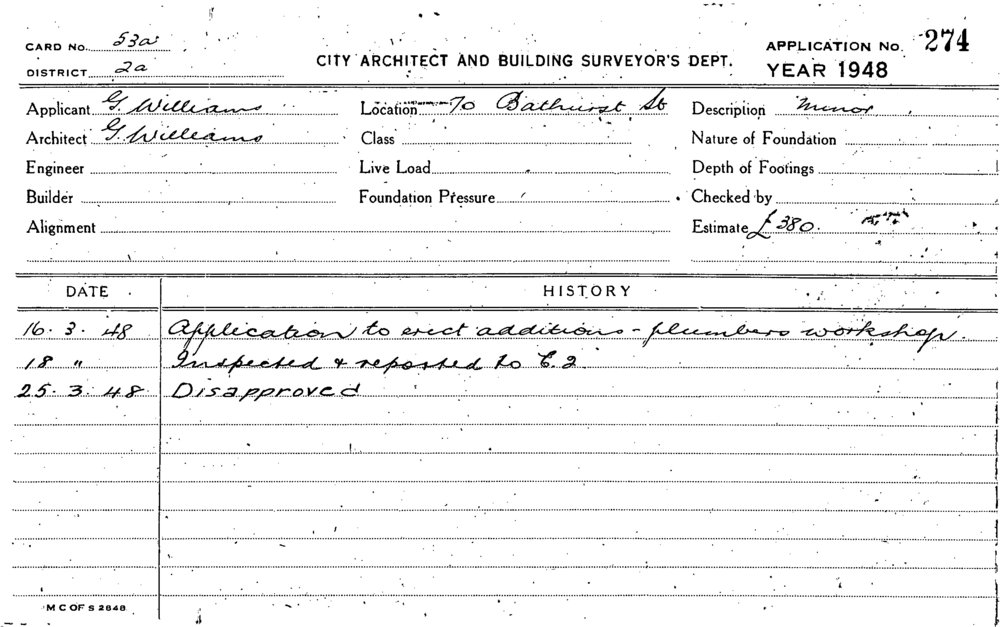 CARD No. 53a
DISTRICT 2a
CITY ARCHITECT AND BUILDING SURVEYOR'S DEPT.
APPLICATION No. 274
YEAR 1948
Applicant G. Williams Location 70 Bathurst St Description Minor
Architect G. Williams Class Nature of Foundation
Engineer Live Load Depth of Footings
Builder Foundation Pressure Checked by
Alignment Estimate £380.
DATE HISTORY
16. 3. 48 Application to erect additions - plumbers workshop.
18 " Inspected & reported to C.2
25. 3. 48 Disapproved
M C OF S 2848